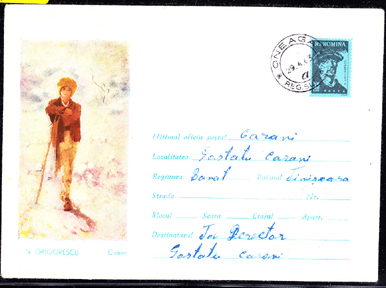 R.P.ROMINA
ONEAGA
29.4.63
a
Oficiul oficiu postal Carani
Localitatea Gostatu Carani
Regiunea Banat Raionul Timişoara
Strada Nr.
Blocul Scara Etajul Apart.
Destinatarul Tov Director
Gostatu Carani
N. GRIGORESCU